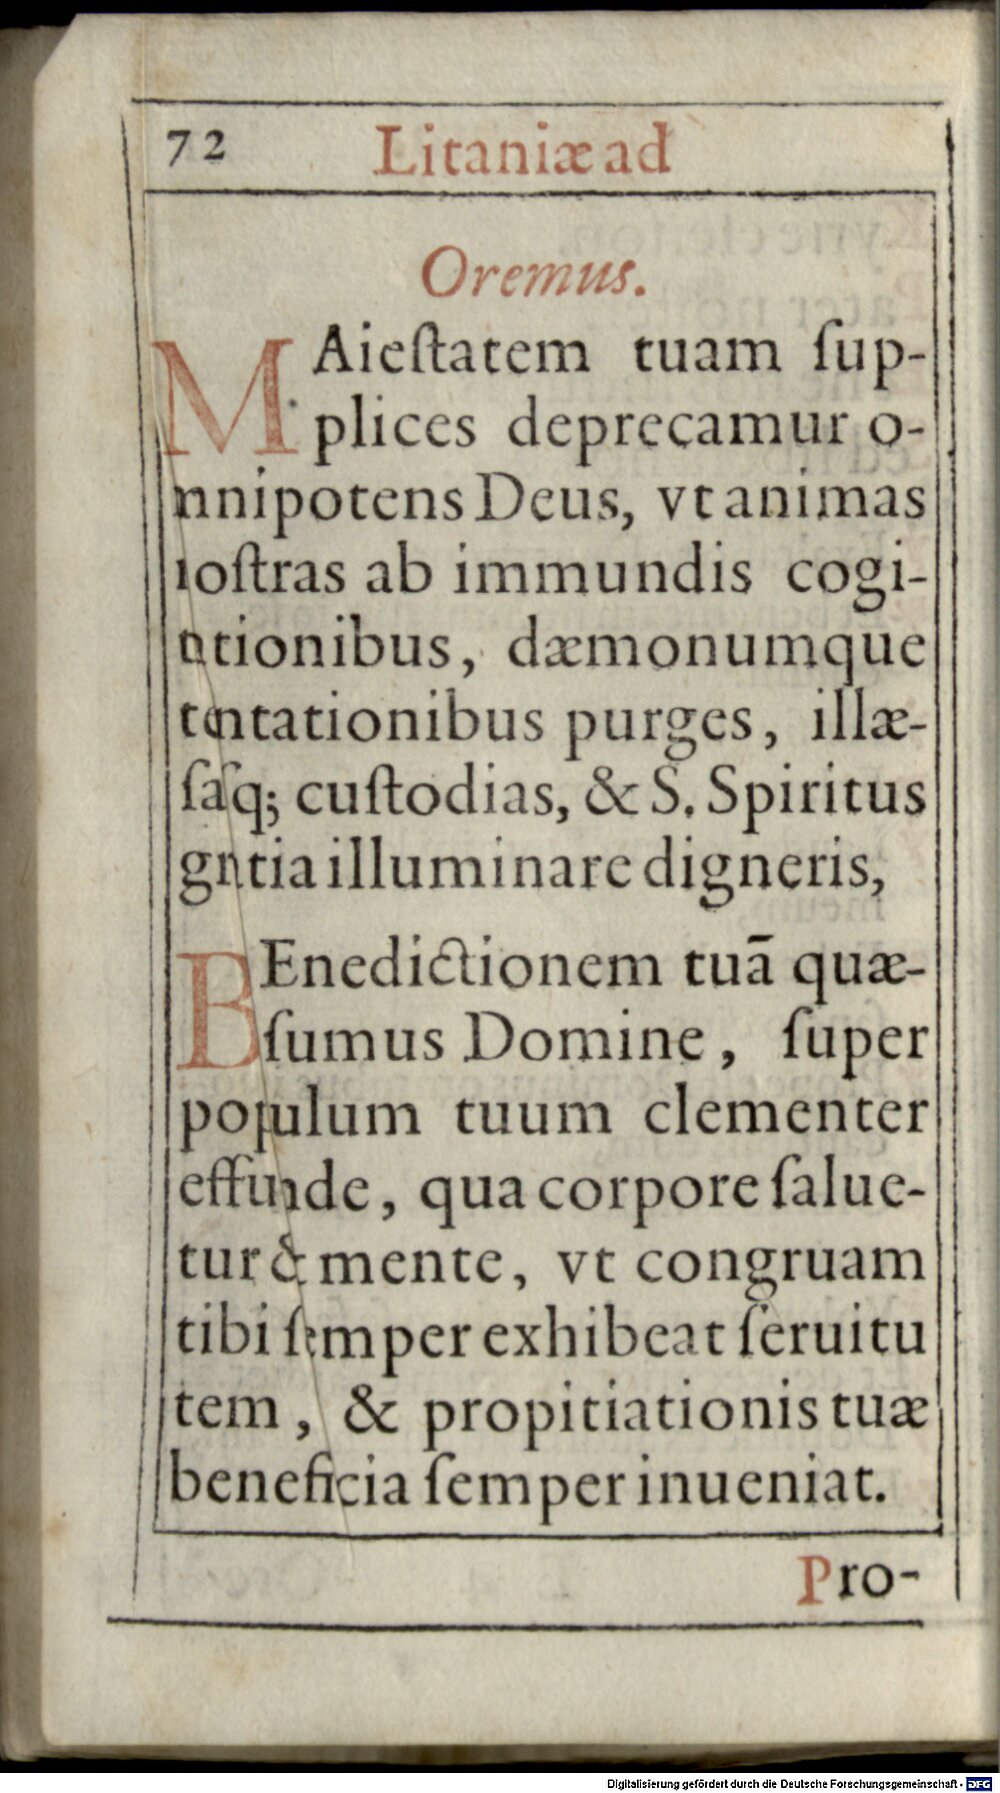 72 Litaniæ ad
Oremus.
MAieſtatem tuam ſup-
plices deprecamur o-
nnipotens Deus, vt animas
ioſtras ab immundis cogi-
ttionibus, dæmonumque
tentationibus purges, illæ-
ſaſq; cuſtodias, & S. Spiritus
grtia illuminare digneris,
BEnedictionem tuā quæ-
ſumus Domine, ſuper
populum tuum clementer
effunde, qua corpore ſalue-
tur & mente, vt congruam
tibi ſemper exhibeat ſeruitu
tem, & propitiationis tuæ
beneficia ſemper inueniat.
Pro-
Digitalisierung gefördert durch die Deutsche Forschungsgemeinschaft - DFG